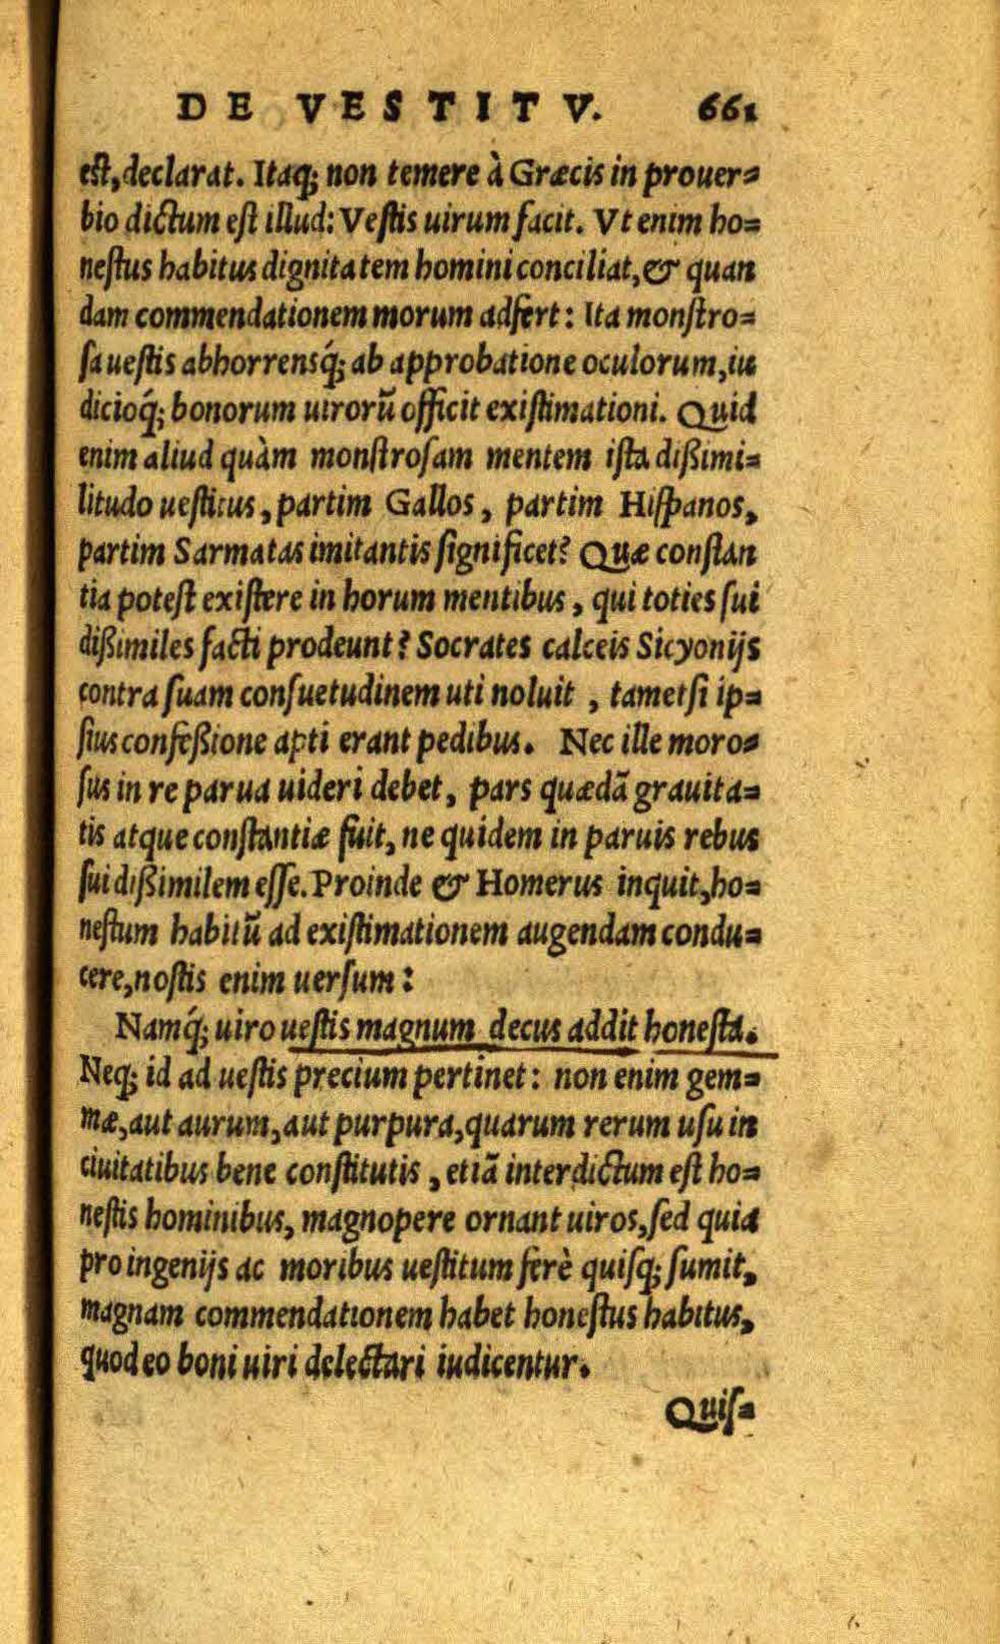 DE VESTITV. 661
est, declarat. Itaq; non temere à Græcis in prouer=
bio dictum est illud: Vestis uirum facit. Vt enim ho=
nestus habitus dignitatem homini conciliat, & quan
dam commendationem morum adfert: Ita monstro=
sa uestis abhorrensq́; ab approbatione oculorum, iu
dicioq́; bonorum uirorũ officit existimationi. Quid
enim aliud quàm monstrosam mentem ista dißimi=
litudo uestitus, partim Gallos, partim Hispanos,
partim Sarmatas imitantis significet? Quæ constan
tia potest existere in horum mentibus, qui toties sui
dißimiles facti prodeunt? Socrates calceis Sicyonijs
contra suam consuetudinem uti noluit, tametsi ip=
sius confeßione apti erant pedibus. Nec ille moro=
sus in re parua uideri debet, pars quædã grauita=
tis atque constantiæ fuit, ne quidem in paruis rebus
sui dißimilem esse. Proinde & Homerus inquit, ho=
nestum habitũ ad existimationem augendam condu=
cere, nostis enim uersum:
Namq́; uiro uestis magnum decus addit honesta.
Neq; id ad uestis precium pertinet: non enim gem=
mæ, aut aurum, aut purpura, quarum rerum usu in
ciuitatibus bene constitutis, etiã interdictum est ho=
nestis hominibus, magnopere ornant uiros, sed quia
pro ingenijs ac moribus uestitum ferè quisq; sumit,
magnam commendationem habet honestus habitus,
quod eo boni uiri delectari iudicentur.
Quis=